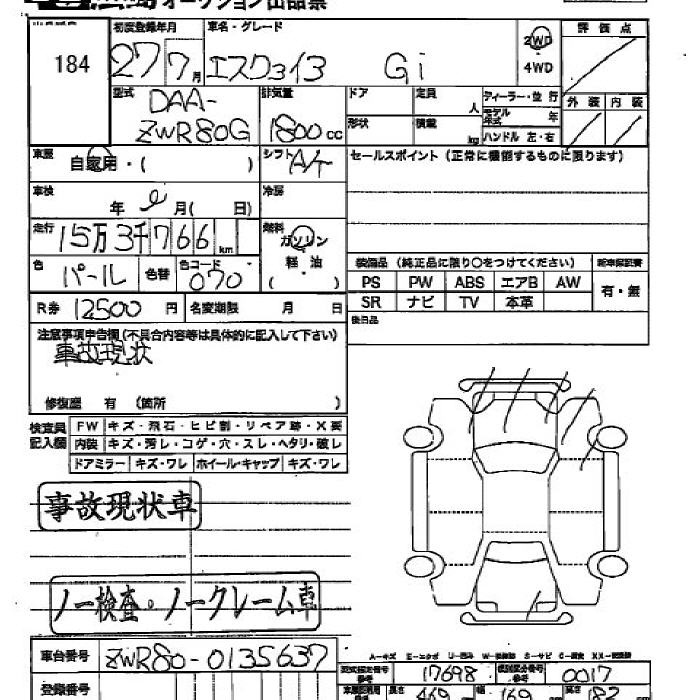 オークション出品票
184
初度登録年月 車名・グレード 評価点
27 7月 エスクァイア Gi 2WD
4WD
型式 排気量 ドア 定員 人 ディーラー・並行 外装 内装
DAA-
ZWR80G 1800cc 形状 積載 kg モデル年式 年
ハンドル 左・右
車歴 自家用・( ) シフト A/T セールスポイント (正常に機能するものに限ります)
車検 年 月( 日) 冷房
走行 15万3千766km 燃料 ガソリン
軽・油
( )
色 パール 色替 色コード 070
装備品 (純正品に限り○をつけてください) 新車保証書
PS PW ABS エアB AW 有・無
SR ナビ TV 本革
R券 12500円 名変期限 月 日
後日品
注意事項申告欄(不具合内容等は具体的に記入して下さい)
事故現状
修復歴 有 (箇所 )
検査員記入欄 FW キズ・飛石・ヒビ割・リペア跡・X要
内装 キズ・汚レ・コゲ・穴・スレ・ヘタリ・破レ
ドアミラー キズ・ワレ ホイール・キャップ キズ・ワレ
事故現状車
ノー検査・ノークレーム車
車台番号 ZWR80-0135637
A-キズ E-エクボ
型式指定番号 17698 類別区分番号 0017
登録番号
長さ 469cm 幅 169cm 高さ 182cm